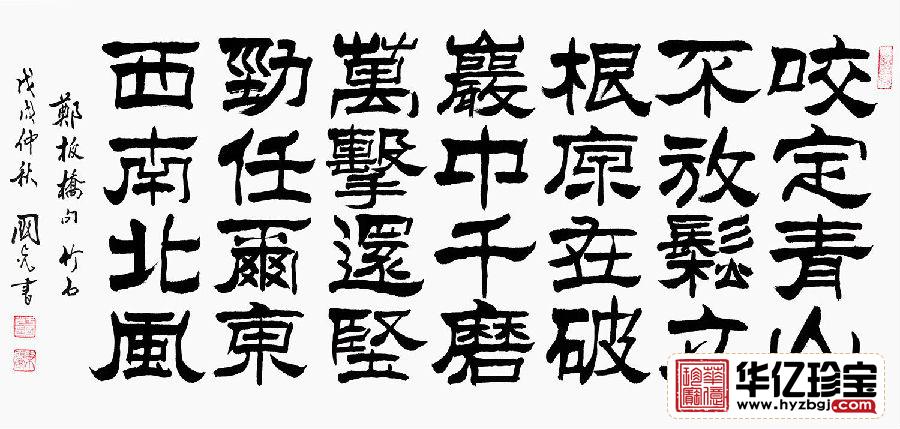 咬定青山
不放鬆立
根原在破
巖中千磨
萬擊還堅
勁任爾東
西南北風
鄭板橋句竹石
戊戌仲秋 國亮書
华亿珍宝
www.hyzbgj.com